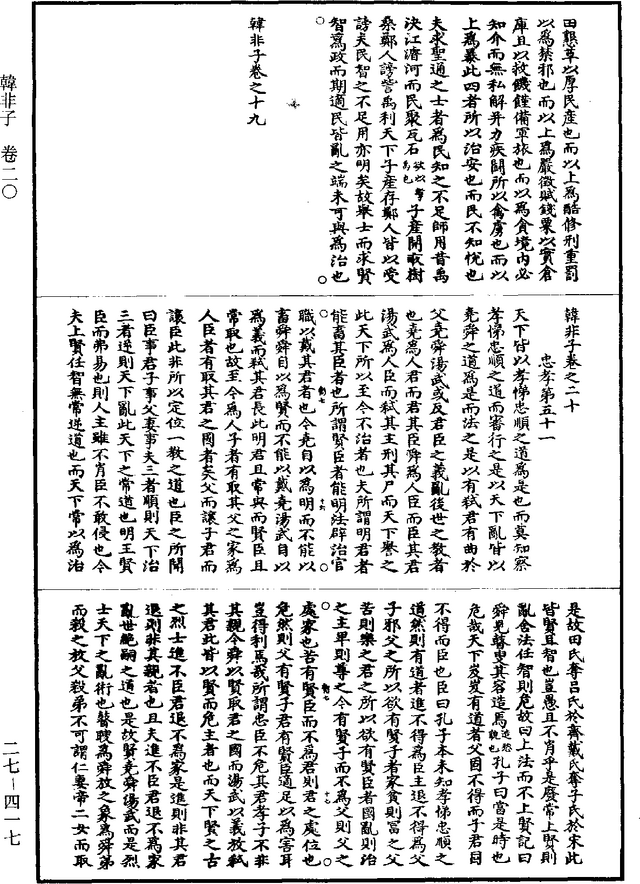 韓非子 卷二〇
二七-四一七
田墾草以厚民產也而以上為酷修刑重罰
以為禁邪也而以上為嚴徵賦錢粟以實倉
庫且以救饑饉備軍旅也而以為貪境內必
知介而無私解并力疾鬪所以禽虜也而以
上為暴此四者所以治安也而民不知悅也
夫求聖通之士者為民知之不足師用昔禹
決江濬河而民聚瓦石子產開畝樹
桑鄭人謗訾禹利天下子產存鄭人皆以受
謗夫民智之不足用亦明矣故舉士而求賢
智為政而期適民皆亂之端未可與為治也
韓非子卷之十九
韓非子卷之二十
忠孝第五十一
天下皆以孝悌忠順之道為是也而莫知察
孝悌忠順之道而審行之是以天下亂皆以
堯舜之道為是而法之是以有弒君有曲於
父堯舜湯武或反君臣之義亂後世之教者
也堯為人君而君其臣舜為人臣而臣其君
湯武為人臣而弒其主刑其尸而天下譽之
此天下所以至今不治者也夫所謂明君者
能畜其臣者也所謂賢臣者能明法辟治官
職以戴其君者也今堯自以為明而不能以
畜舜舜自以為賢而不能以戴堯湯武自以
為義而弒其君長此明君且常與而賢臣且
常取也故至今為人子者有取其父之家為
人臣者有取其君之國者矣父而讓子君而
讓臣此非所以定位一教之道也臣之所聞
曰臣事君子事父妻事夫三者順則天下治
三者逆則天下亂此天下之常道也明王賢
臣而弗易也則人主雖不肖臣不敢侵也今
夫上賢任智無常逆道也而天下常以為治
是故田氏奪呂氏於齊戴氏奪子氏於宋此
皆賢且智也豈愚且不肖乎是廢常上賢則
亂舍法任智則危故曰上法而不上賢記曰
舜見瞽瞍其容造焉孔子曰當是時也
危哉天下岌岌有道者父固不得而子君固
不得而臣也臣曰孔子本未知孝悌忠順之
道然則有道者進不得為臣主退不得為父
子耶父之所以欲有賢子者家貧則富之父
苦則樂之君之所以欲有賢臣者國亂則治
之主卑則尊之今有賢子而不為父則父之
處家也苦有賢臣而不為君則君之處位也
危然則父有賢子君有賢臣適足以為害耳
豈得利焉哉所謂忠臣不危其君孝子不非
其親今舜以賢取君之國而湯武以義放弒
其君此皆以賢而危主者也而天下賢之古
之烈士進不臣君退不為家是進則非其君
退則非其親者也且夫進不臣君退不為家
亂世絕嗣之道也是故賢堯舜湯武而是烈
士天下之亂術也瞽瞍為舜父而舜放之象為舜弟
而殺之放父殺弟不可謂仁妻帝二女而取